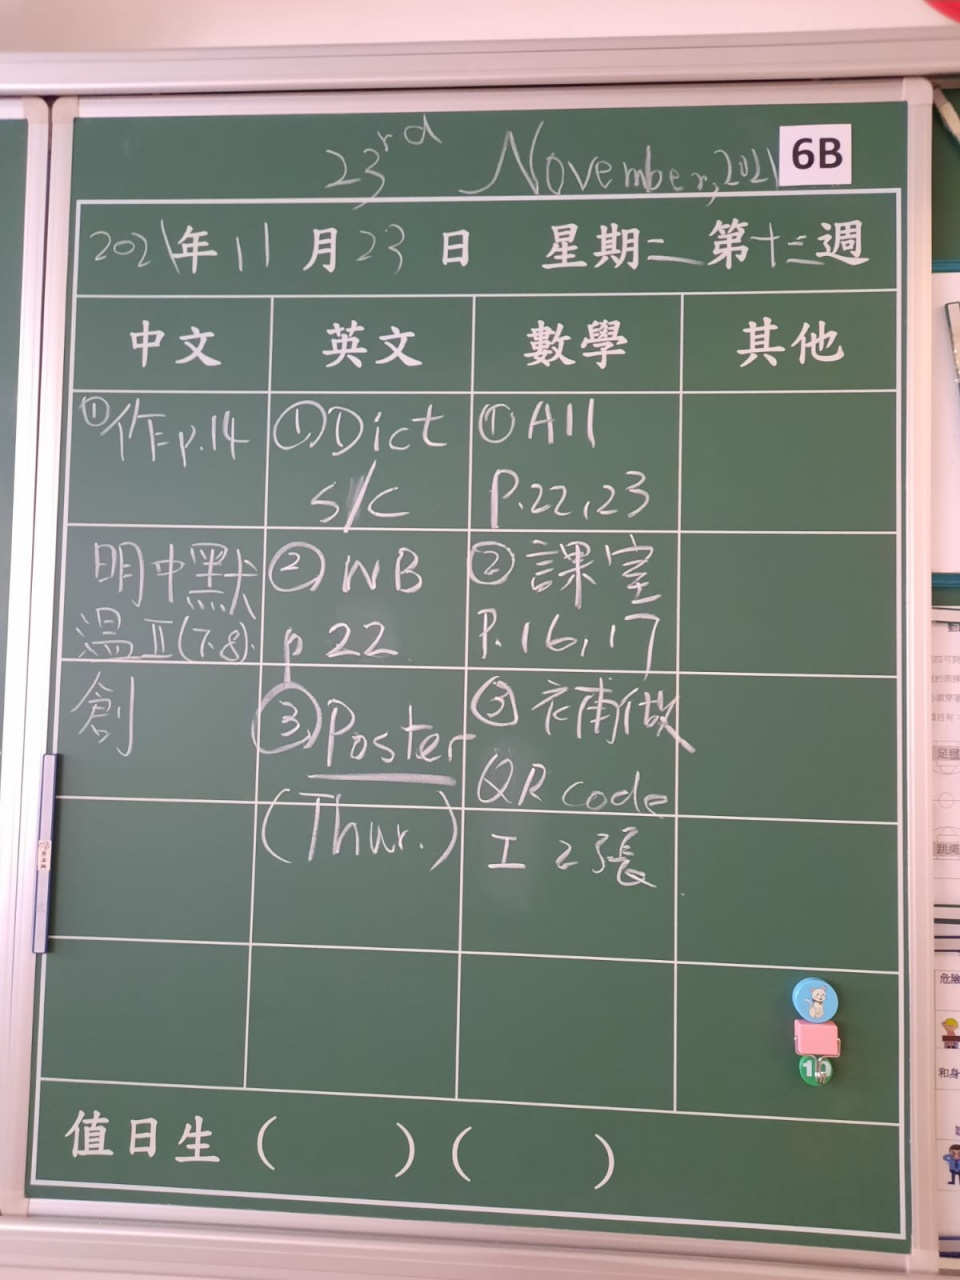 23rd November, 2021
6B
2021年11月23日 星期二 第十三週
中文 英文 數學 其他
①作p.14
明中默
温Ⅱ(7.8).
創
①Dict
s/c
②WB
p 22
③Poster
(Thur.)
①All
P.22,23
②課室
P.16,17
③補做
QR code
工 2張
值日生 ( ) ( )